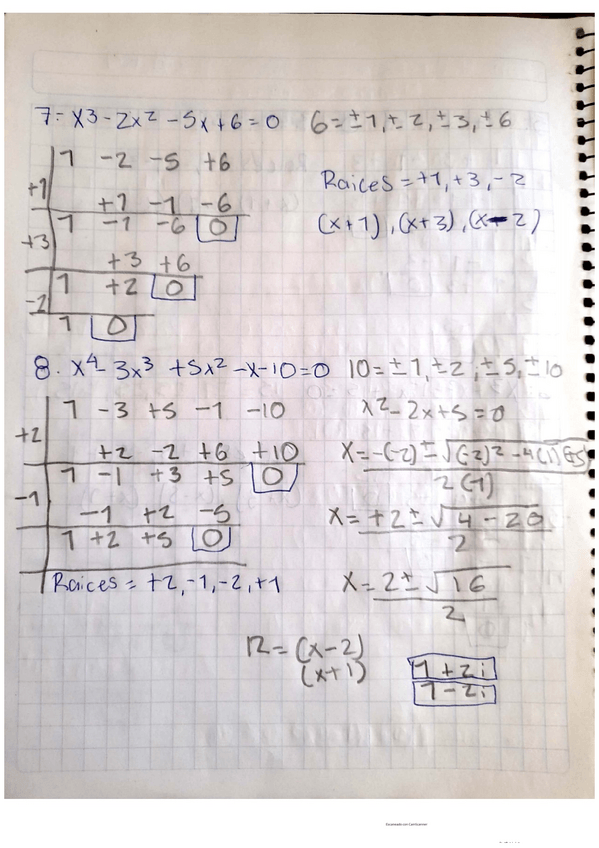 7= x3 - 2x² - 5x + 6 = 0   6 = ±1, ±2, ±3, ±6
1 -2 -5 +6
+1 +1 -1 -6
Raices = +1, +3, -2
1 -1 -6 0
(x+1), (x+3), (x-2)
+3 +3 +6
1 +2 0
-2
1 0
8. x⁴ - 3x³ + 5x² - x - 10 = 0   10 = ±1, ±2, ±5, ±10
1 -3 +5 -1 -10
x² - 2x + 5 = 0
+2 +2 -2 +6 +10
x = -(-2) ± √(-2)² - 4(1)(+5)
2(1)
1 -1 +3 +5 0
-1 -1 +2 -5
x = +2 ± √4 - 20
2
1 +2 +5 0
Raices = +2, -1, -2, +1
x = 2 ± √16
2
R = (x-2)
(x+1)
1 + 2i
1 - 2i
Escaneado con CamScanner